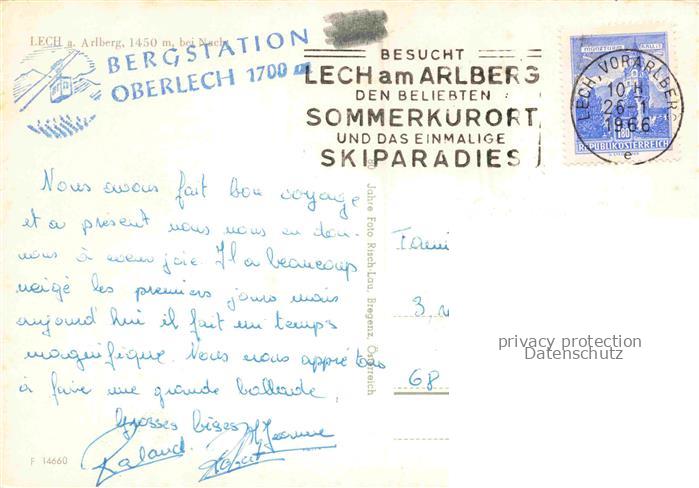 LECH a. Arlberg, 1450 m, bei Nacht
BERGSTATION
OBERLECH 1700 m
BESUCHT
LECH am ARLBERG
DEN BELIEBTEN
SOMMERKURORT
UND DAS EINMALIGE
SKIPARADIES
LECH, VORARLBERG
10 H
26-1
1966
e
1.80
REPUBLIK ÖSTERREICH
Nous avons fait bon voyage
et a présent nous nous en don-
nons à coeur joie. Il a beaucoup
neigé les premiers jours mais
aujourd'hui il fait un temps
magnifique. Nous nous apprêtons
à faire une grande ballade.
Grosses bises
Jeanne
Roland
Jahre Foto Risch-Lau, Bregenz, Österreich
3,
68
privacy protection
Datenschutz
F 14660